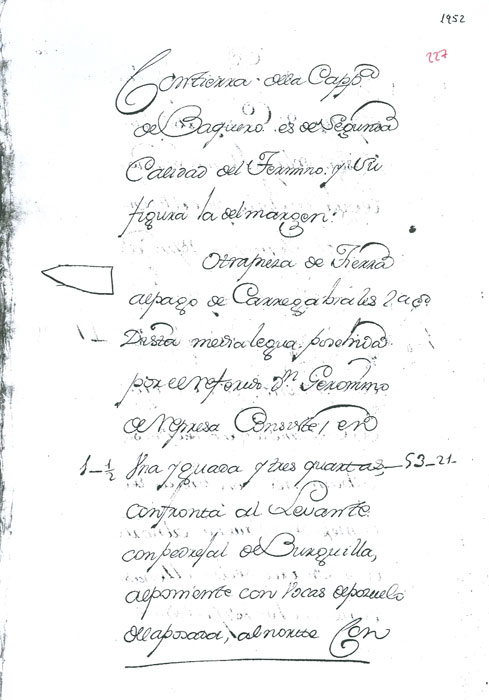 1952
227
Con tierra della Capp.a
de Baquero es de Segunda
Calidad del Termino y su
figura la del margen.
Otra pieza de Tierra
al pago de
Dista media legua poseida
por el referido Dn Geronimo
de Represa Consiste en
1-1/2 Una Yguada y tres quartas 53-21
confronta al Levante
con pedrejal de Burguilla,
al poniente con Rocas del pozuelo
de laposada, al norte Con